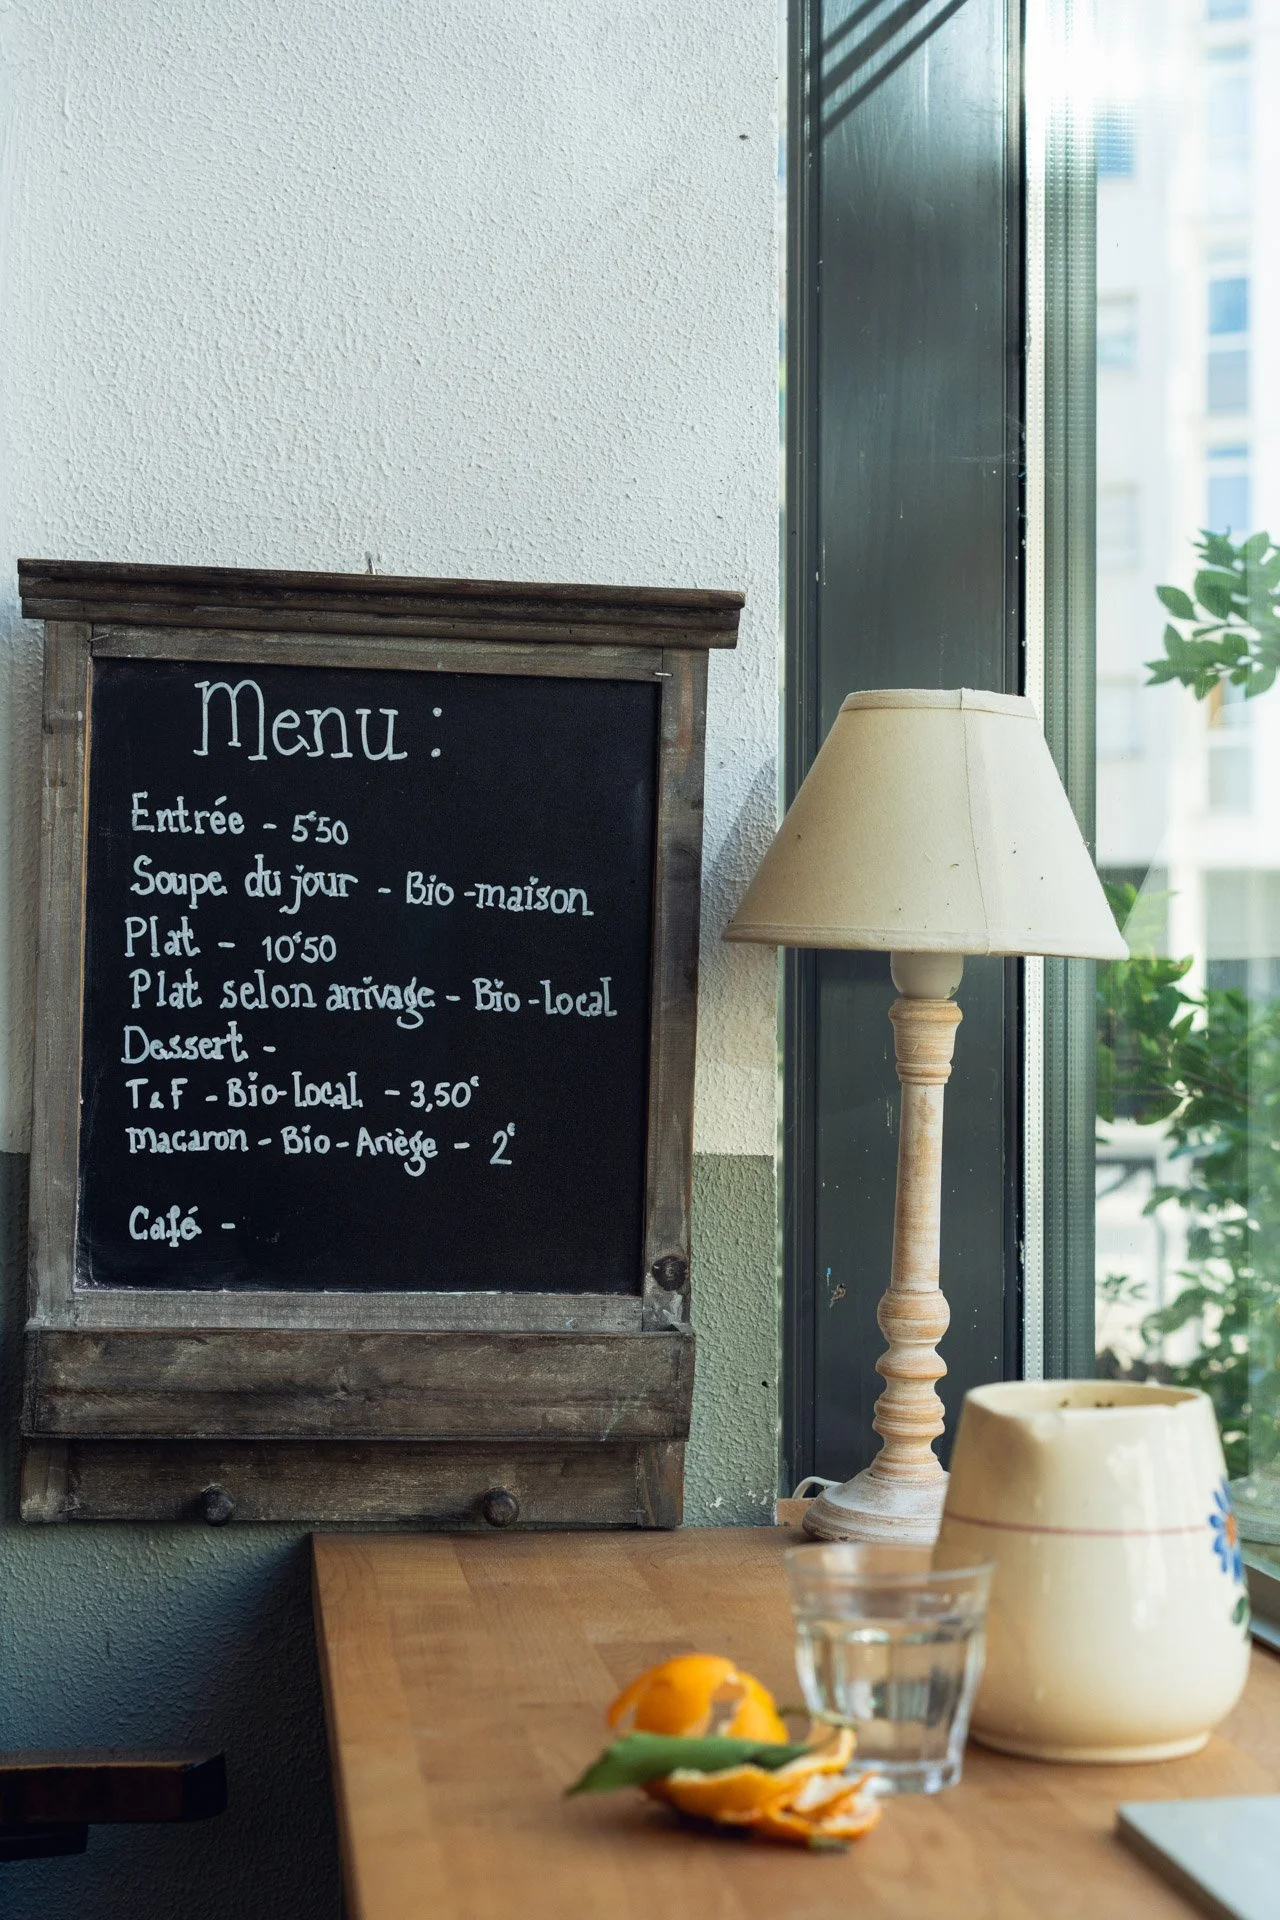 Menu :
Entrée - 5€50
Soupe du jour - Bio - maison
Plat - 10€50
Plat selon arrivage - Bio - Local
Dessert -
T&F - Bio-local - 3,50€
Macaron - Bio - Ariège - 2€
Café -